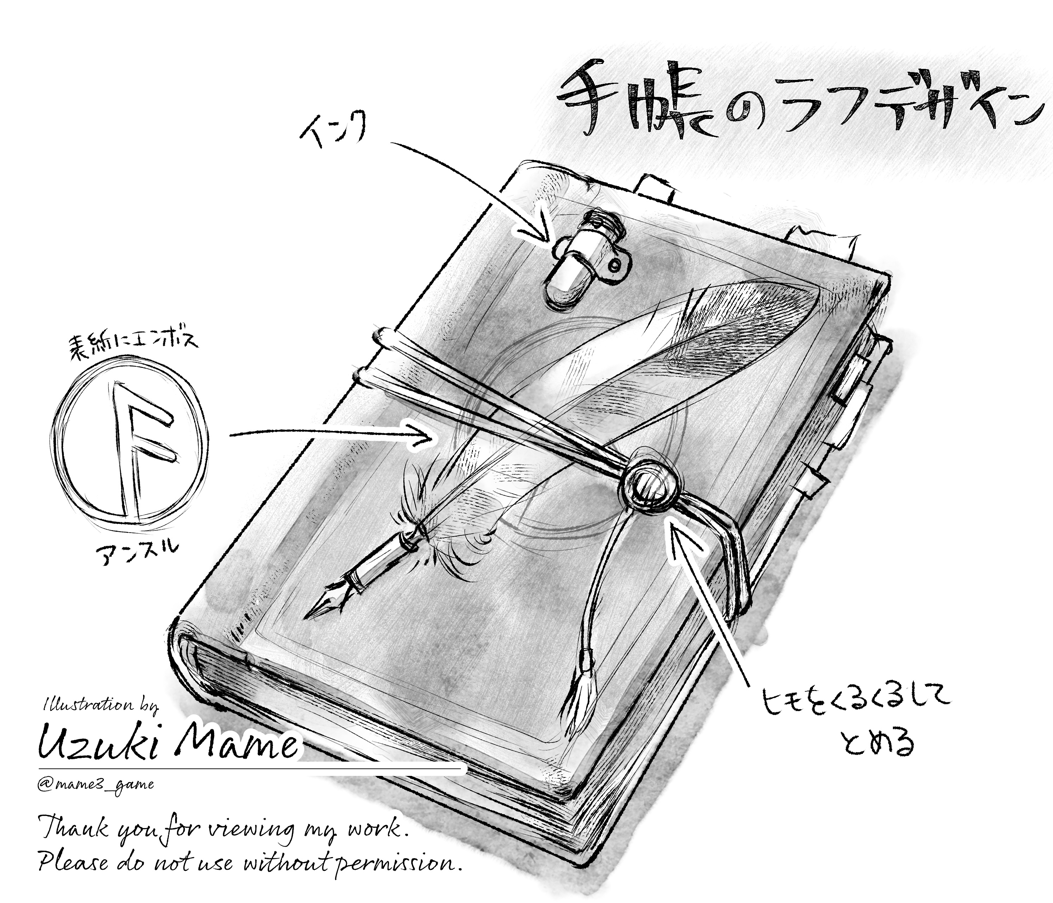 手帳のラフデザイン
インク
表紙にエンボス
アンスル
ヒモをくるくるして
とめる
Illustration by
Uzuki Mame
@mame3_game
Thank you for viewing my work.
Please do not use without permission.